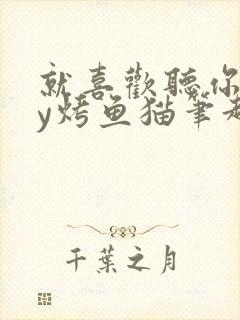 就喜歡聽你
y烤鱼猫筆趣
千葉之月